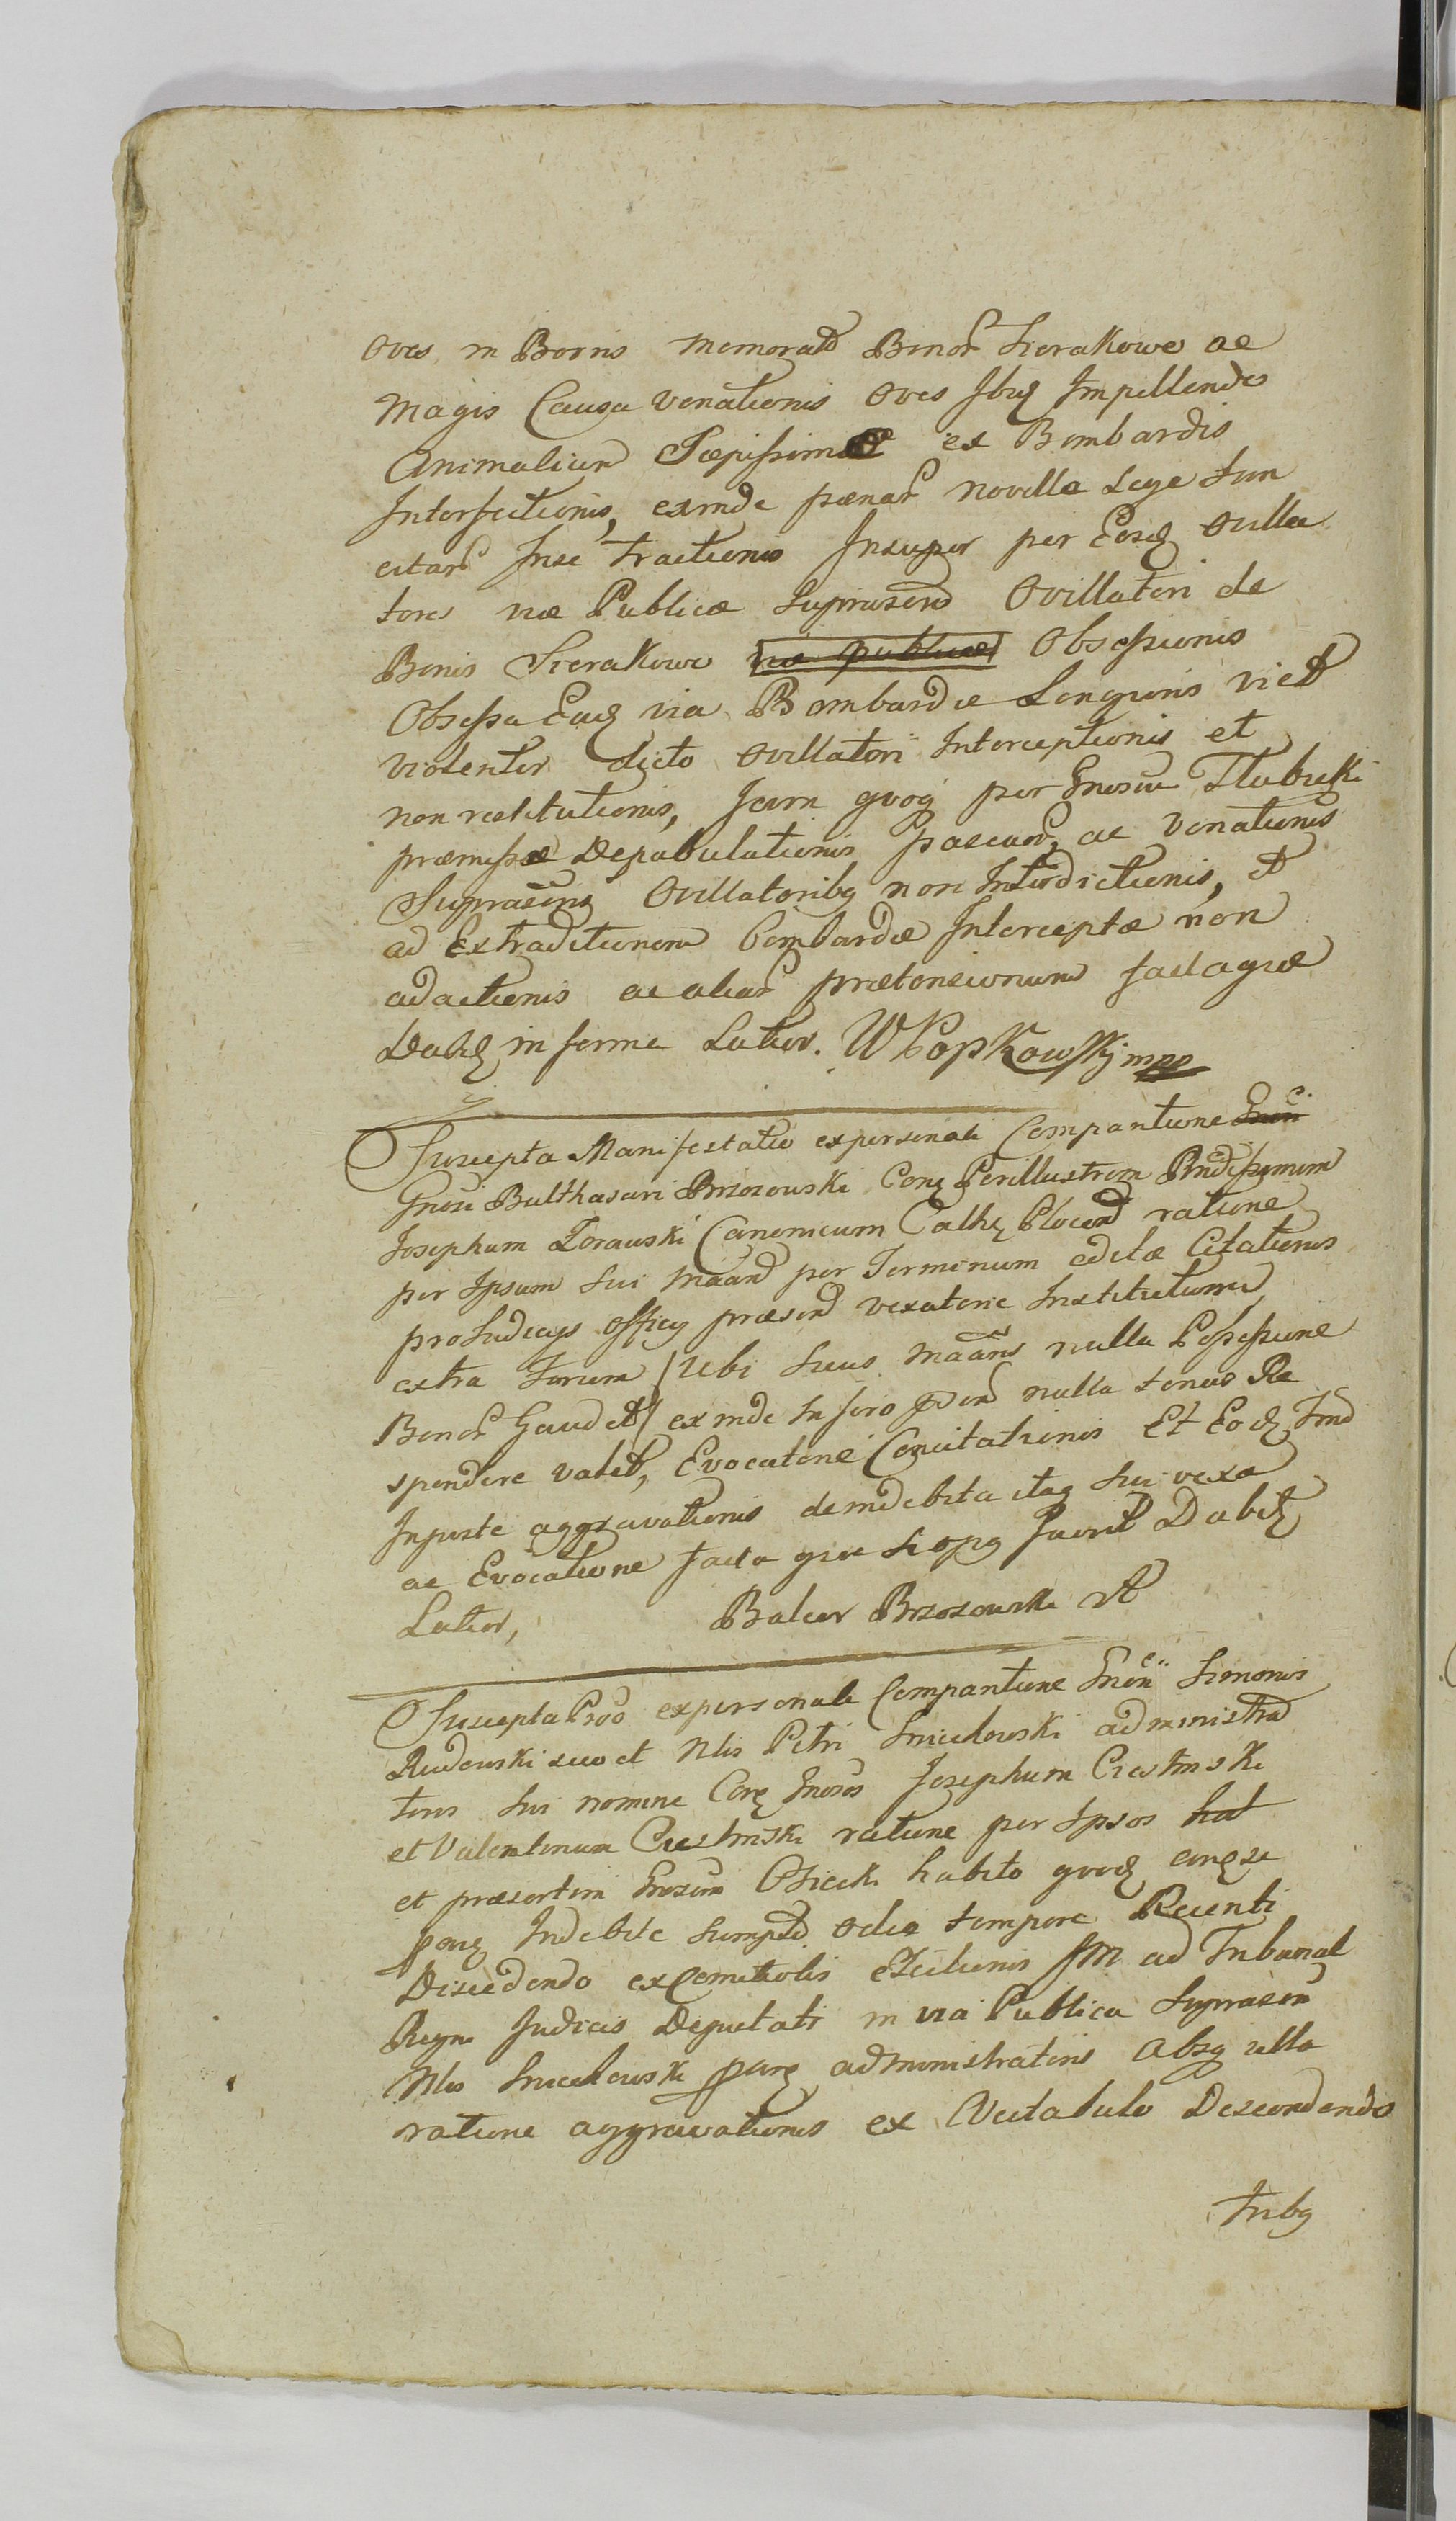 Oves in Borris memorat Bonor Sierakowo ac
Magis Causa venationis Oves Ibq Impellendo
Animalium Sæpissimæ ex Bombardis
Interfectionis, exinde pænar novella Lege San
citar Inse tractionis Insuper per Eosq Ovilla
tores viæ Publicæ Suprascrip Ovillatori de
Bonis Sierakowo via publica Obsessionis
Obsessa Eaq via Bombardæ Longioris viet
violenter dicto Ovillatori Interceptionis et
non restitutionis, Jam quoq per Gnosum Słubicki
præmissæ Depabulationis pascuor, ac venationis
Suprascrips Ovillatoribq non Interdictionis, et
ad Extraditionem bombardæ Interceptæ non
adactionis ac aliar prætensionum facta quæ
Dabiq in forma Latior. WPopkowskj mpp
Suscepta Manifestatio ex personali Comparitione
Gnosi Balthasari Brzozowski Conq Perillustrem Rndissimum
Josephum Zorawski Canonicum Cathq Plocen ratione
per Ipsum Sui Maand per Terminum editæ Citationis
pro Judicijs Officij præsend vexatorie Institutione
extra Forum / Ubi Suus Maans nulla Possessione
Bonor Gaudet / exinde In foro nulla tenus Re
spondere valet, Evocatone Concitationis Et Eodq
Injuste aggravationis deindebita itaq Sui vexa
ac Evocatione facta quæ Si opq Fuerit Dabitq
Latior, Balcer Brzozowski
Suscepta Pro ex personali Comparitione Gnen Simonis
Rudowski suo et Nlis Petri Smiechowski administra
toris Sui nomine Conq Gnosos Josephum Ciestinski
et Valentinum Ciestinski ratione per Ipsos hat
et præsertim Gnosum Osiecki habito quodq
Indebite Sumpto Odio tempore Recenti
Discedendo ex Comitiolis Electionis ad Tribunal
Regni Judicis Deputati in via Publica Suprascrip
Nlis Smiechowski administratoris Absq ulla
ratione aggravationis ex Vectabulo Descendendo
Inbq